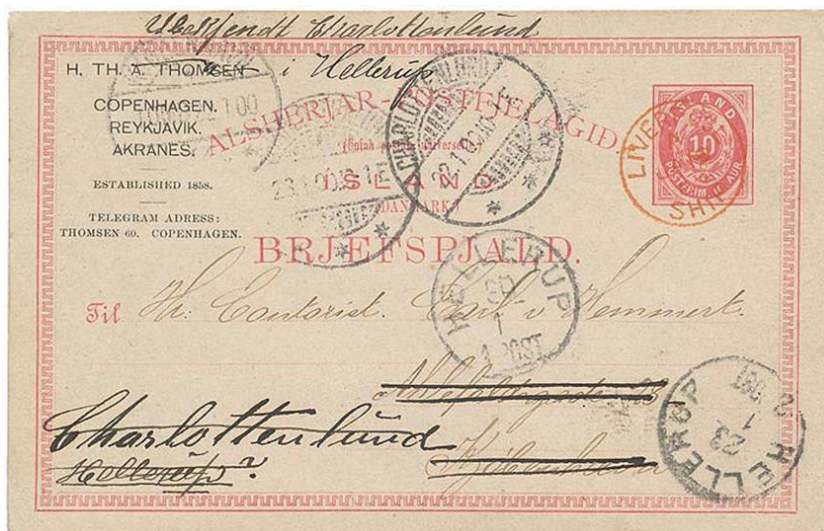 Ubekjendt Charlottenlund
i Hellerup
H. TH. A. THOMSEN
COPENHAGEN.
REYKJAVIK.
AKRANES.
ESTABLISHED 1858.
TELEGRAM ADRESS:
THOMSEN 60. COPENHAGEN.
ALSHERJAR-POSTFJELAGID.
(Union postale universelle)
ISLAND
(DANMARK)
BRJEFSPJALD.
ISLAND
10
POSTFRIM. 11 AUR.
LIVERPOOL
SHIP
CHARLOTTENLUND
22.1.00
23.1.00
HELLERUP
1 POST
Til Hr. Contorist. Carl v. Hemmert.
Charlottenlund
Hellerup ?
Kjøbenhavn
HELLERUP
23
1